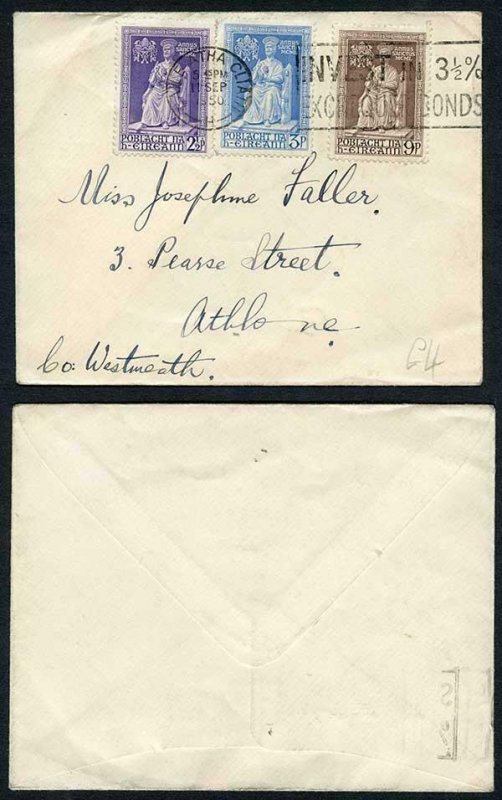 ANNUS SANCTUS MCML
POBLACHT NA
h-ÉIREANN 2½P
ANNUS SANCTUS MCML
POBLACHT NA
h-ÉIREANN 3P
ANNUS SANCTUS MCML
POBLACHT NA
h-ÉIREANN 9P
ATHA CLIA
PM
SEP
50
INVEST IN 3½%
BONDS
Miss Josephine Faller.
3. Pearse Street.
Athlone
Co: Westmeath.